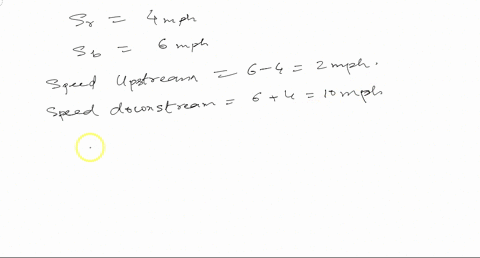 Sr = 4 mph
Sb = 6 mph
Speed Upstream = 6-4 = 2 mph.
Speed downstream = 6 + 4 = 10 mph